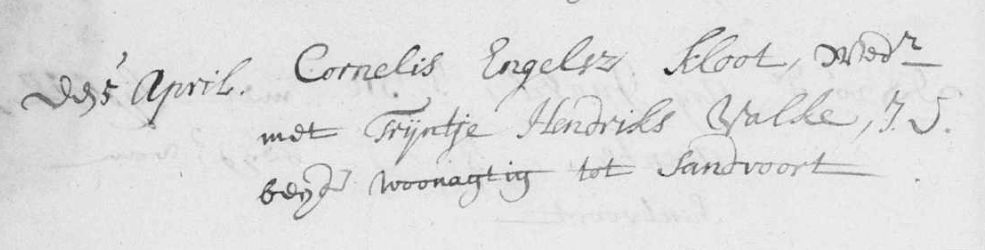 den 5 April. Cornelis Engelsz Kloot, Wedr
met Trijntje Hendriks Valke, J. D.
beyd woonagtig tot Sandvoort